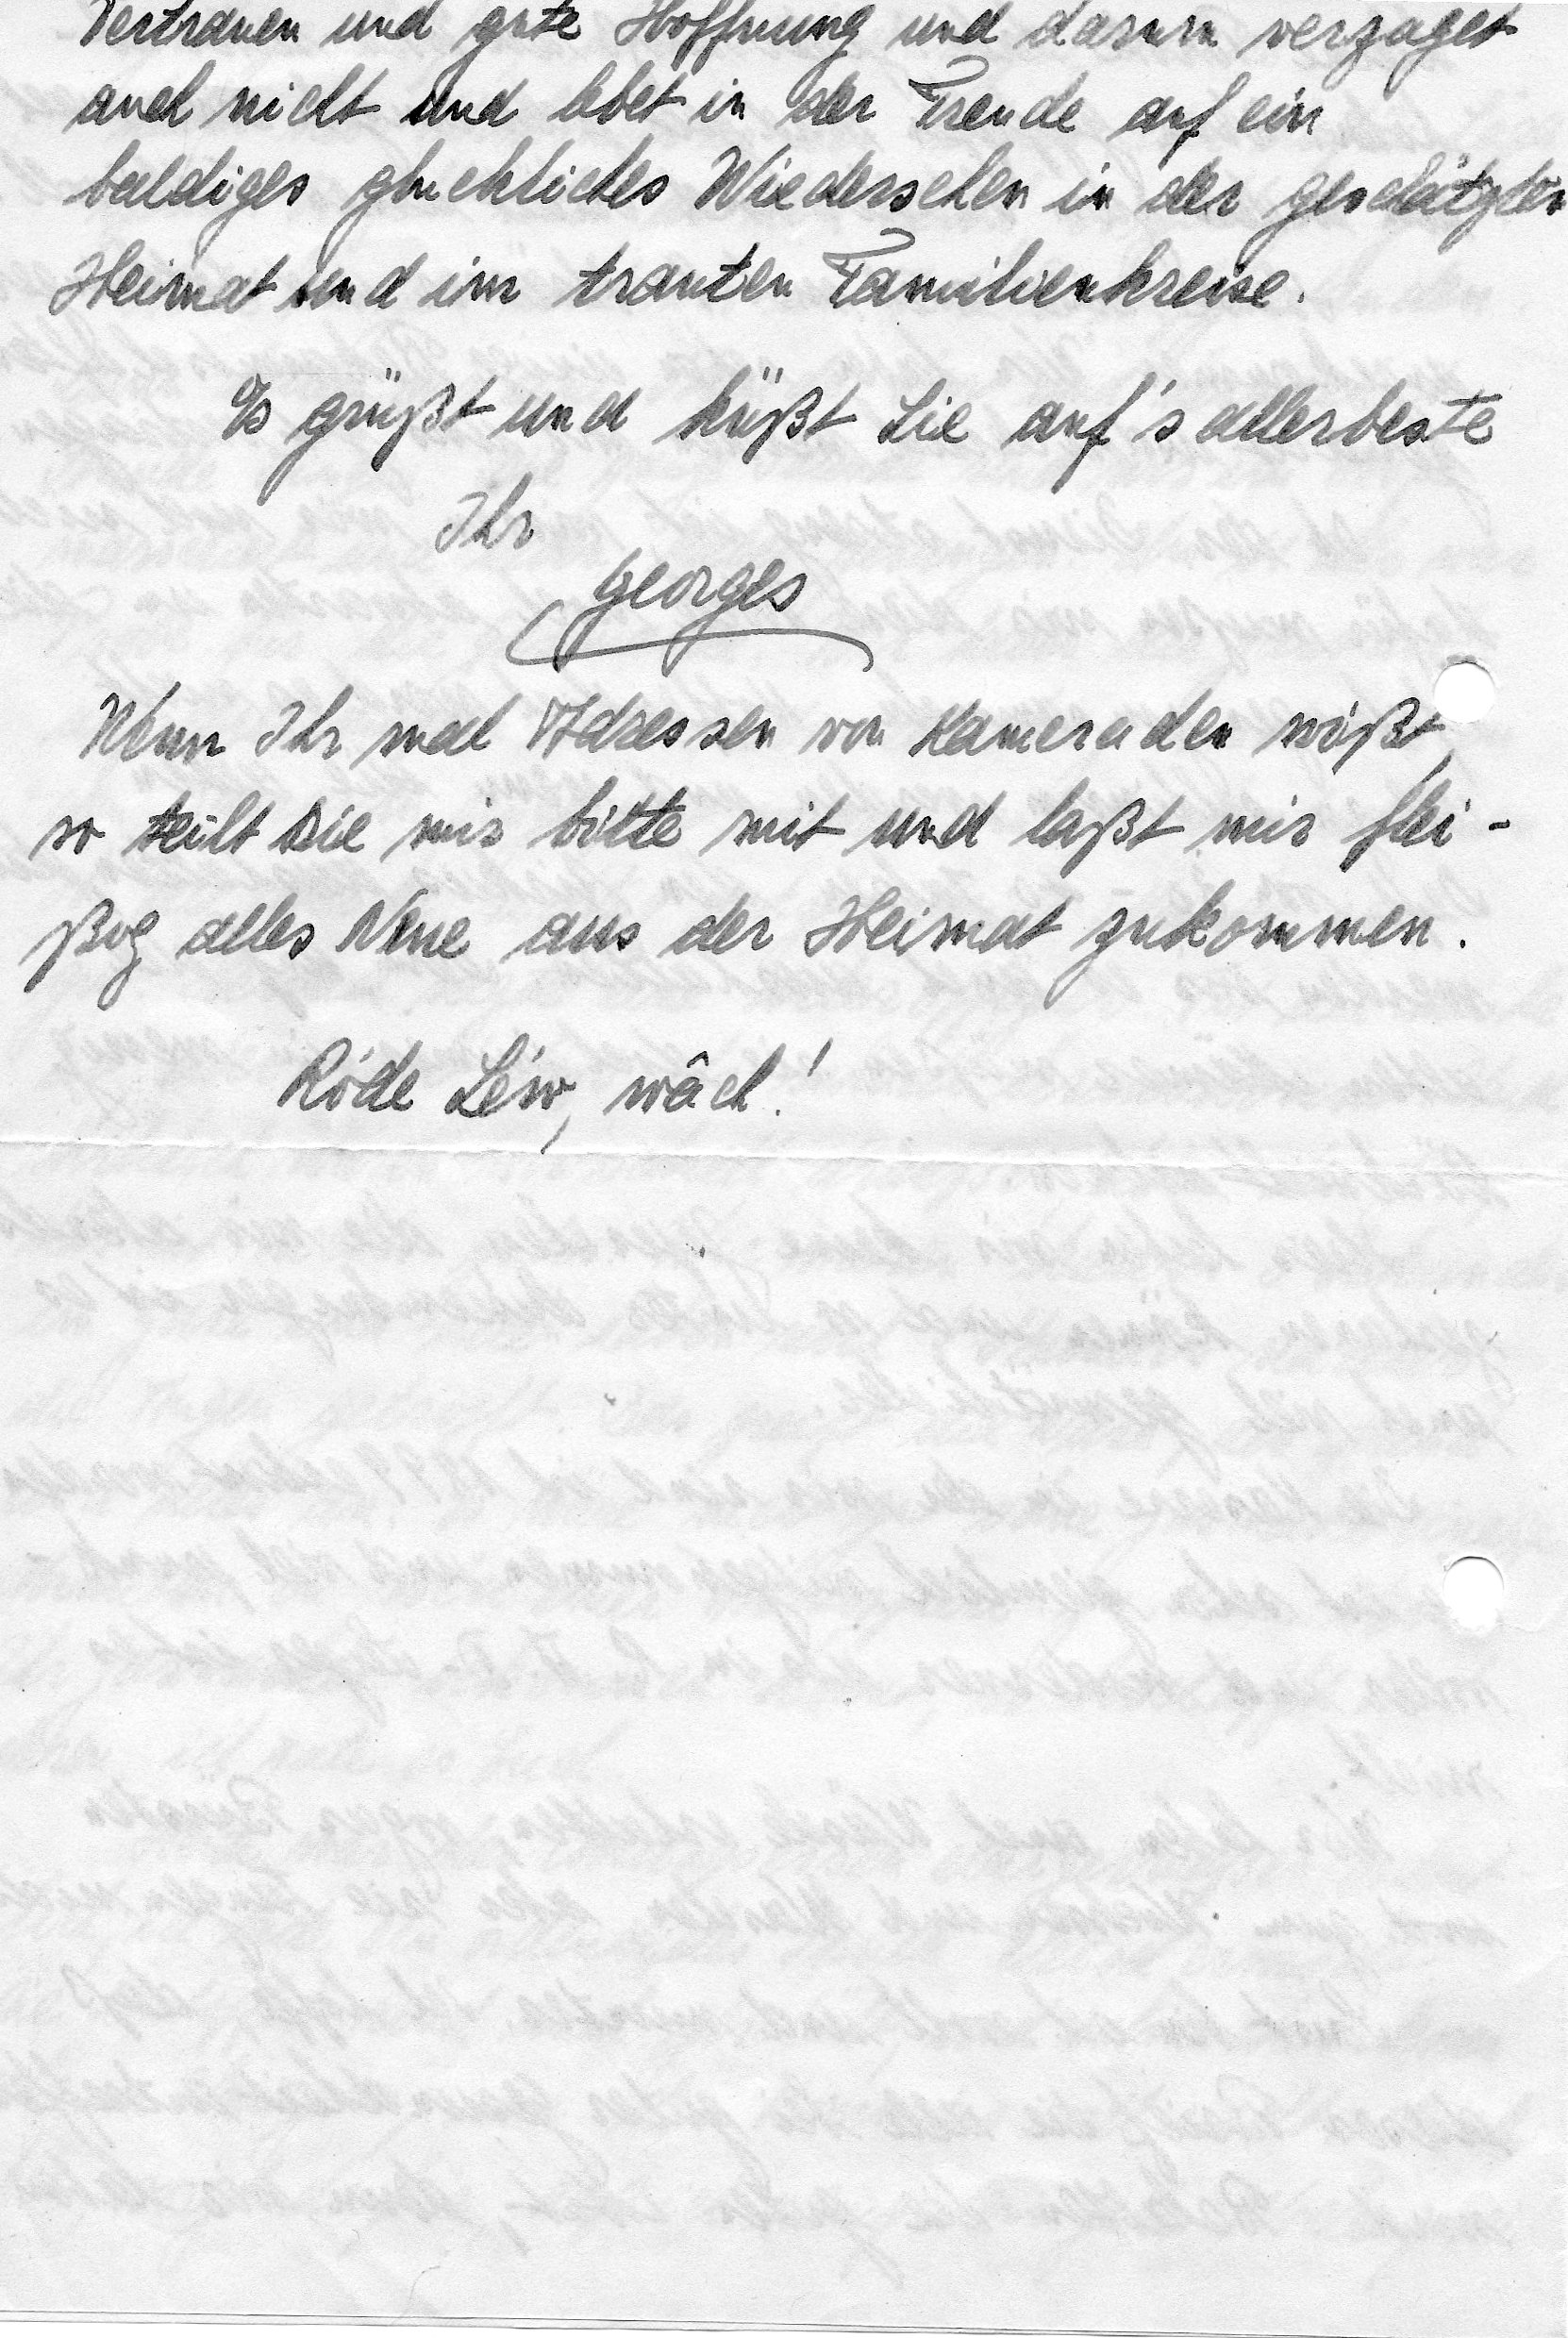 Vertrauen und gute Hoffnung und darum verzaget
auch nicht und lebet in der Freude auf ein
baldiges glückliches Wiedersehen in der geschätzten
Heimat und im trauten Familienkreise.
Es grüßt und küßt Sie auf's allerbeste
Ihr
Georges
Wenn Ihr mal Adressen von Kameraden wißt,
so teilt sie mir bitte mit und laßt mir flei-
ßig alles Neue aus der Heimat zukommen.
Róde Léiw, wâch!